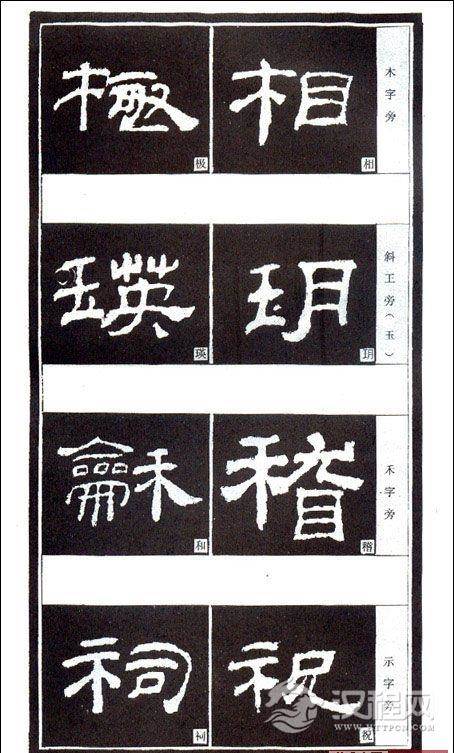 木字旁
相 相
極 极
斜工旁（玉）
玥 玥
瑛 瑛
禾字旁
稽 稽
龢 和
示字旁
祝 祝
祠 祠
汉程网
HTTPCN.COM